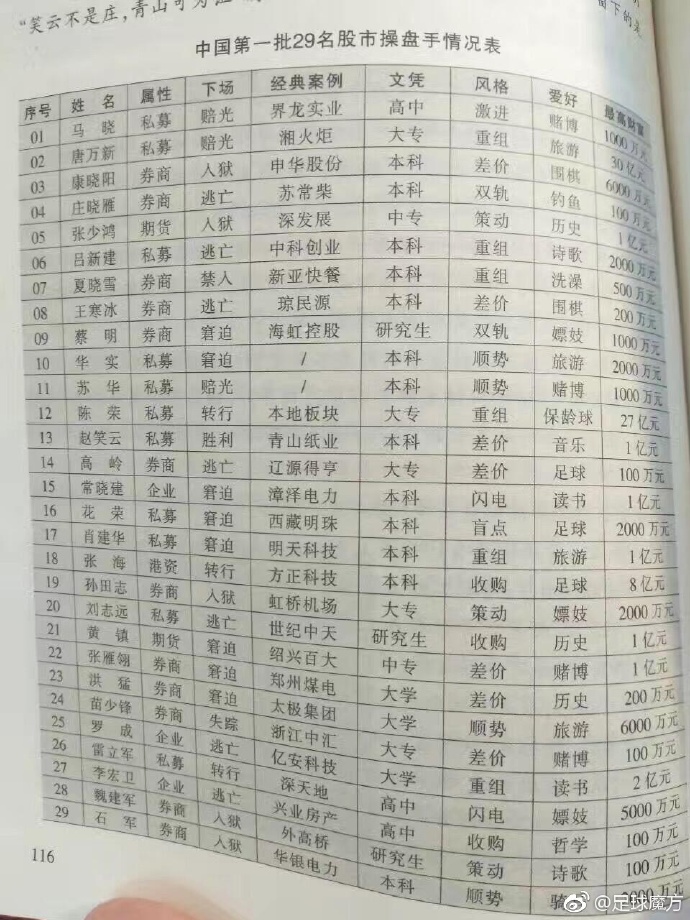 "笑云不是庄,青山可为
留下的是
中国第一批29名股市操盘手情况表
序号 姓名 属性 下场 经典案例 文凭 风格 爱好 最高财富
01 马晓 私募 赔光 界龙实业 高中 激进 赌博 1000万元
02 唐万新 私募 赔光 湘火炬 大专 重组 旅游 30亿元
03 康晓阳 券商 入狱 申华股份 本科 差价 围棋 6000万元
04 庄晓雁 券商 逃亡 苏常柴 本科 双轨 钓鱼 100万元
05 张少鸿 期货 入狱 深发展 中专 策动 历史 1亿元
06 吕新建 私募 逃亡 中科创业 本科 重组 诗歌 2000万元
07 夏晓雪 券商 禁入 新亚快餐 本科 重组 洗澡 500万元
08 王寒冰 券商 逃亡 琼民源 本科 差价 围棋 200万元
09 蔡明 券商 窘迫 海虹控股 研究生 双轨 嫖妓 1000万元
10 华实 私募 窘迫 / 本科 顺势 旅游 2000万元
11 苏华 私募 赔光 / 本科 顺势 赌博 1000万元
12 陈荣 私募 转行 本地板块 大专 重组 保龄球 27亿元
13 赵笑云 私募 胜利 青山纸业 本科 差价 音乐 1亿元
14 高岭 券商 逃亡 辽源得亨 大专 差价 足球 100万元
15 常晓建 企业 窘迫 漳泽电力 本科 闪电 读书 1亿元
16 花荣 私募 窘迫 西藏明珠 本科 盲点 足球 2000万元
17 肖建华 私募 窘迫 明天科技 本科 重组 旅游 1亿元
18 张海 港资 转行 方正科技 本科 收购 足球 8亿元
19 孙田志 券商 入狱 虹桥机场 大专 策动 嫖妓 2000万元
20 刘志远 私募 逃亡 世纪中天 研究生 收购 历史 1亿元
21 黄镇 期货 窘迫 绍兴百大 中专 差价 赌博 1亿元
22 张雁翎 券商 窘迫 郑州煤电 大学 差价 历史 200万元
23 洪猛 券商 窘迫 太极集团 大学 顺势 旅游 6000万元
24 苗少锋 券商 失踪 浙江中汇 大专 差价 赌博 100万元
25 罗成 企业 逃亡 亿安科技 大学 重组 读书 2亿元
26 雷立军 私募 转行 深天地 高中 闪电 嫖妓 5000万元
27 李宏卫 企业 逃亡 兴业房产 高中 收购 哲学 100万元
28 魏建军 券商 入狱 外高桥 研究生 策动 诗歌 100万元
29 石军 券商 入狱 华银电力 本科 顺势 骑
116
@足球魔方